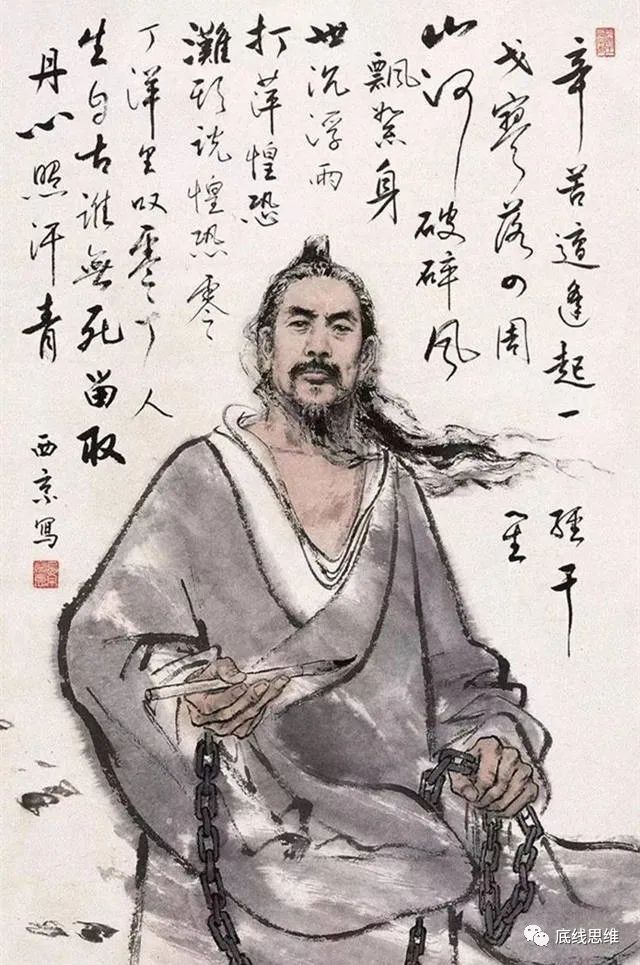 辛苦遭逢起一經干
戈寥落四周星
山河破碎风
飄絮身
世沉浮雨
打萍惶恐
灘頭說惶恐零
丁洋里叹零丁人
生自古誰無死留取
丹心照汗青
西京寫
底线思维